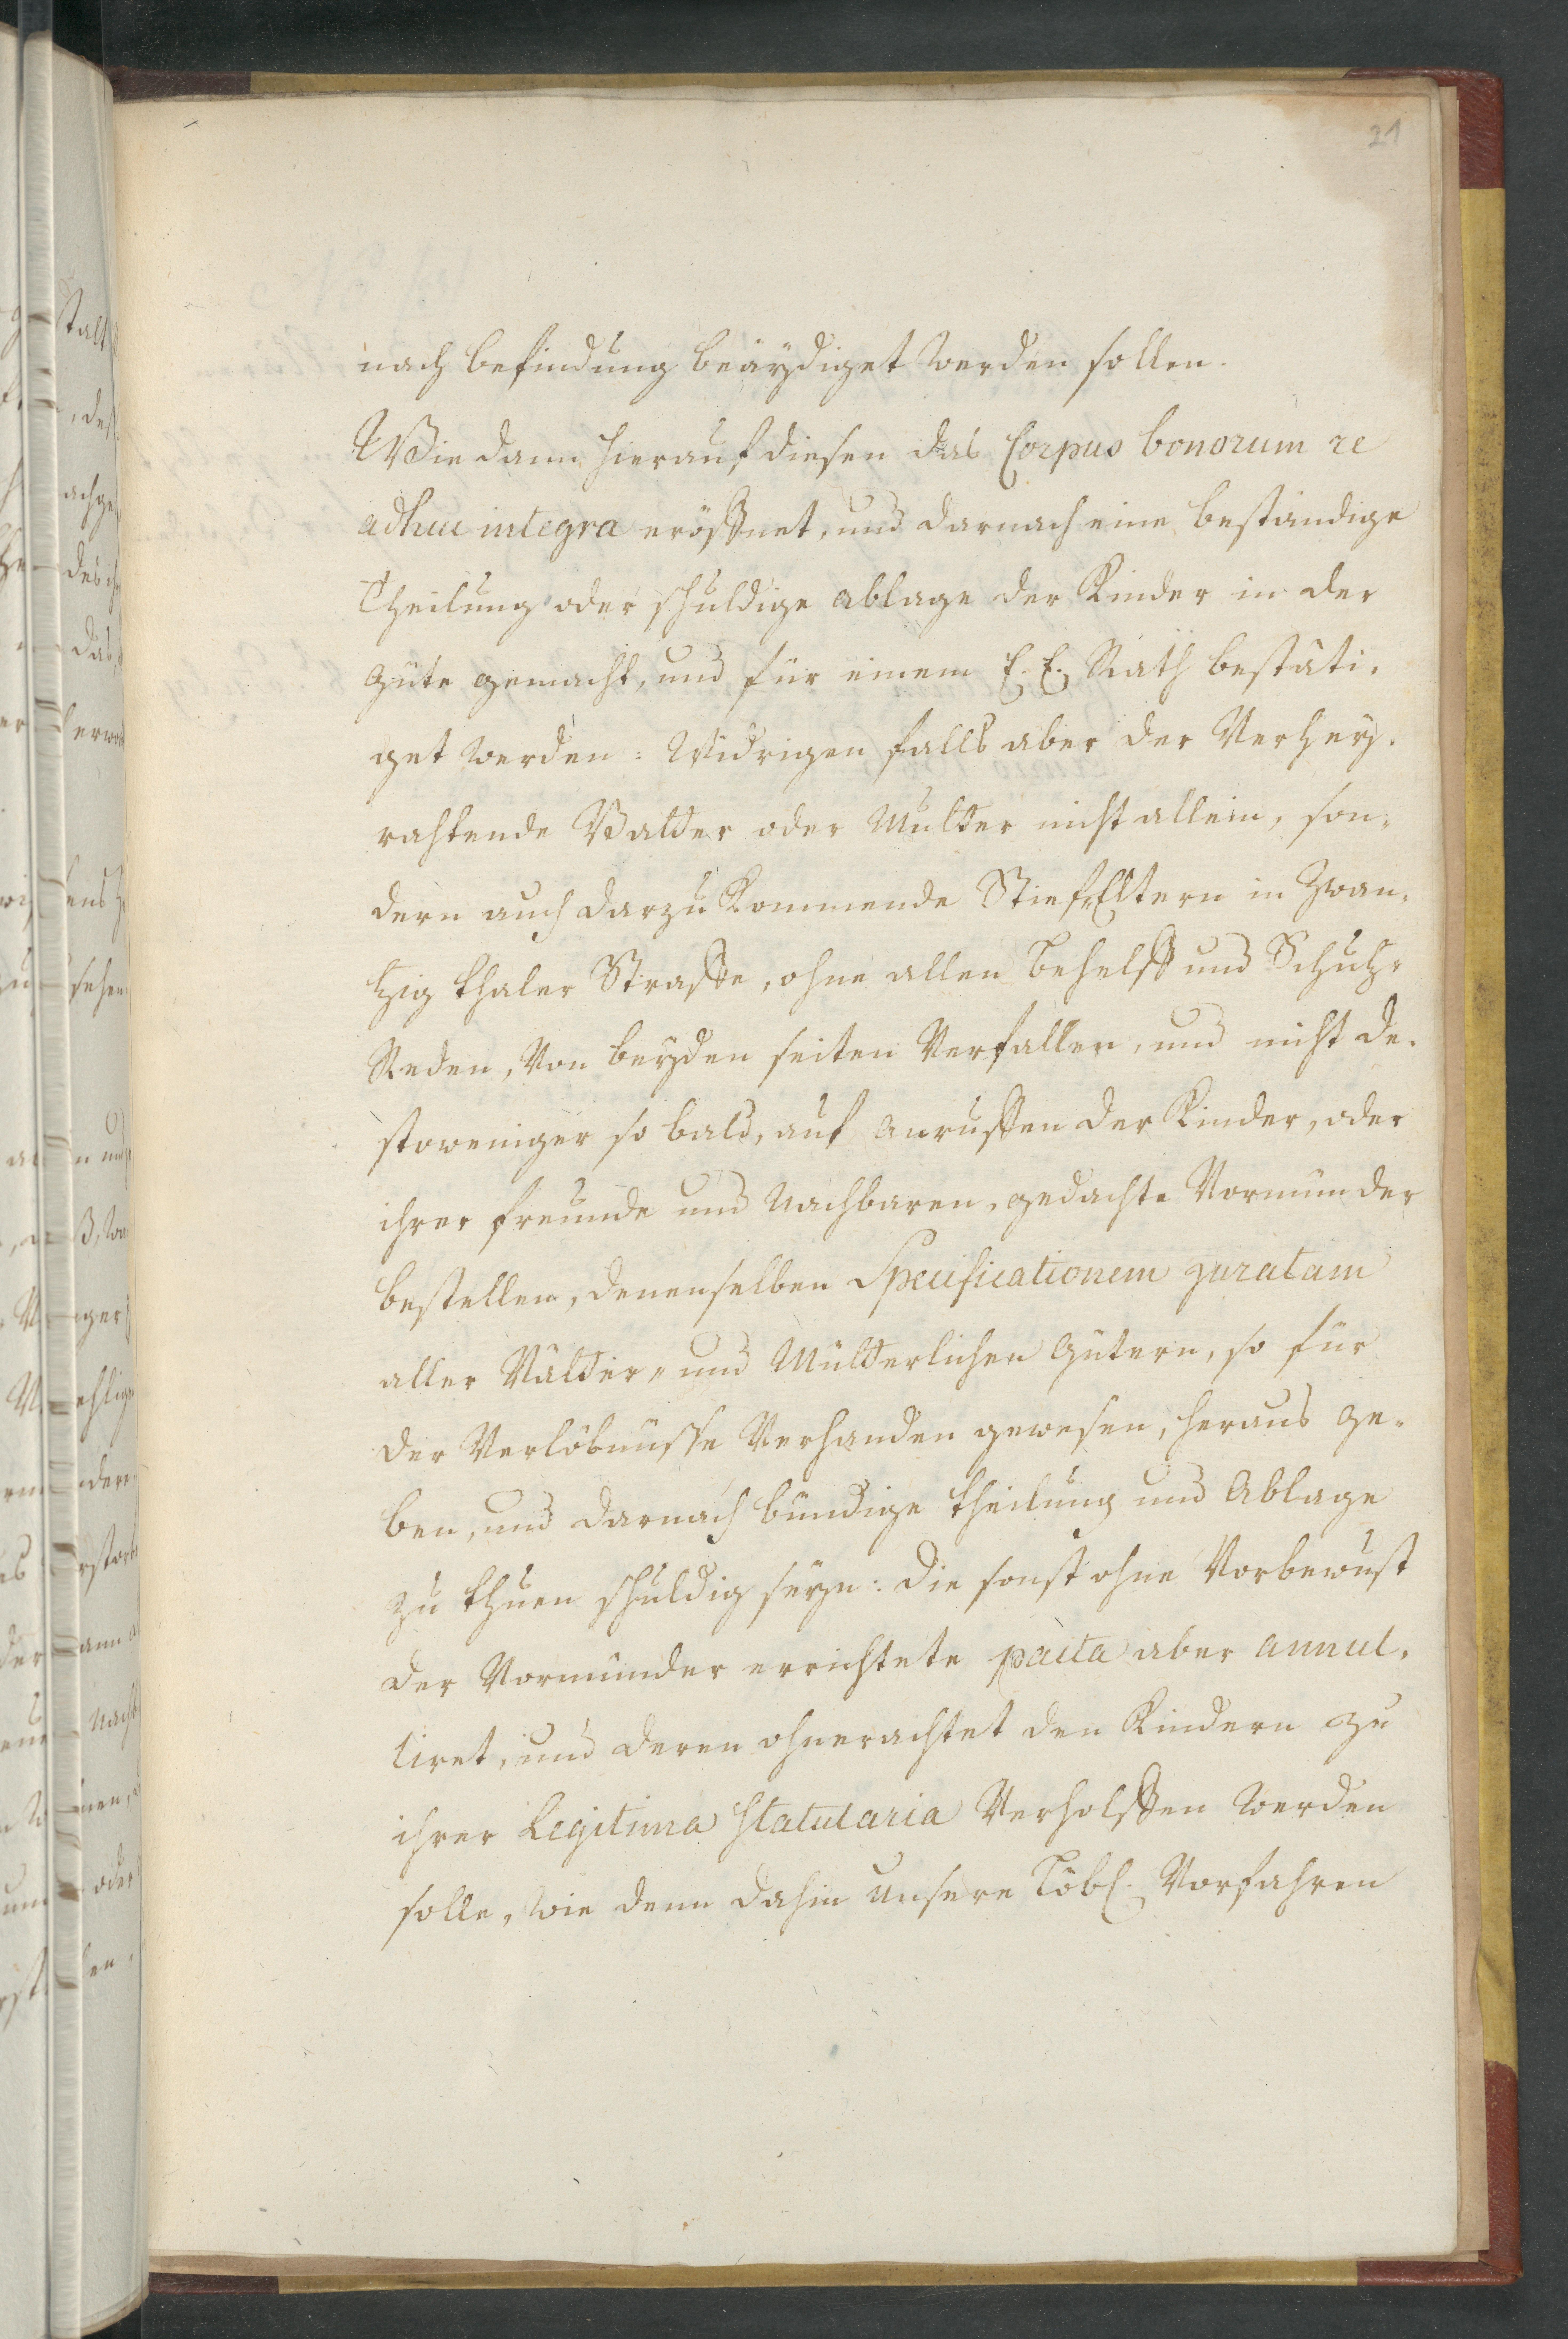 21
nach befindung beäydiget werden sollen.
Wie dann hierauf diesen das Corpus bonorum re
adhuc integra eröffnet, und darnach eine beständige
Theilung oder schuldige ablage der Kinder in der
güte gemacht, und für einem E. E. Rath bestäti-
get werden: Widrigen falls aber der Verhey-
rahtende Vatter oder Mutter nicht allein, son-
dern auch darzu Kommende Stief-Eltern in Zwan-
tzig thaler Straffe, ohne allen behelff und Schutz-
Reden, Von beyden seiten Verfallen, und nicht de-
stoweniger so bald, auf anruffen der Kinder, oder
ihrer freunde und Nachbaren, gedachte Vormünder
bestellen, denenselben Specificationem juratam
aller Vätter- und Mütterlichen gütern, so für
der Verlöbnüsse Verhanden gewesen, heraus ge-
ben, und darnach bündige theilung und Ablage
zu thuen schuldig seyn: die sonst ohne Vorbewust
der Vormünder errichtete pacta aber annul-
liret, und deren ohnerachtet den Kindern zu
ihrer Legitima Statutaria Verholffen werden
solle, wie denn dahin unsere Löbl. Vorfahren